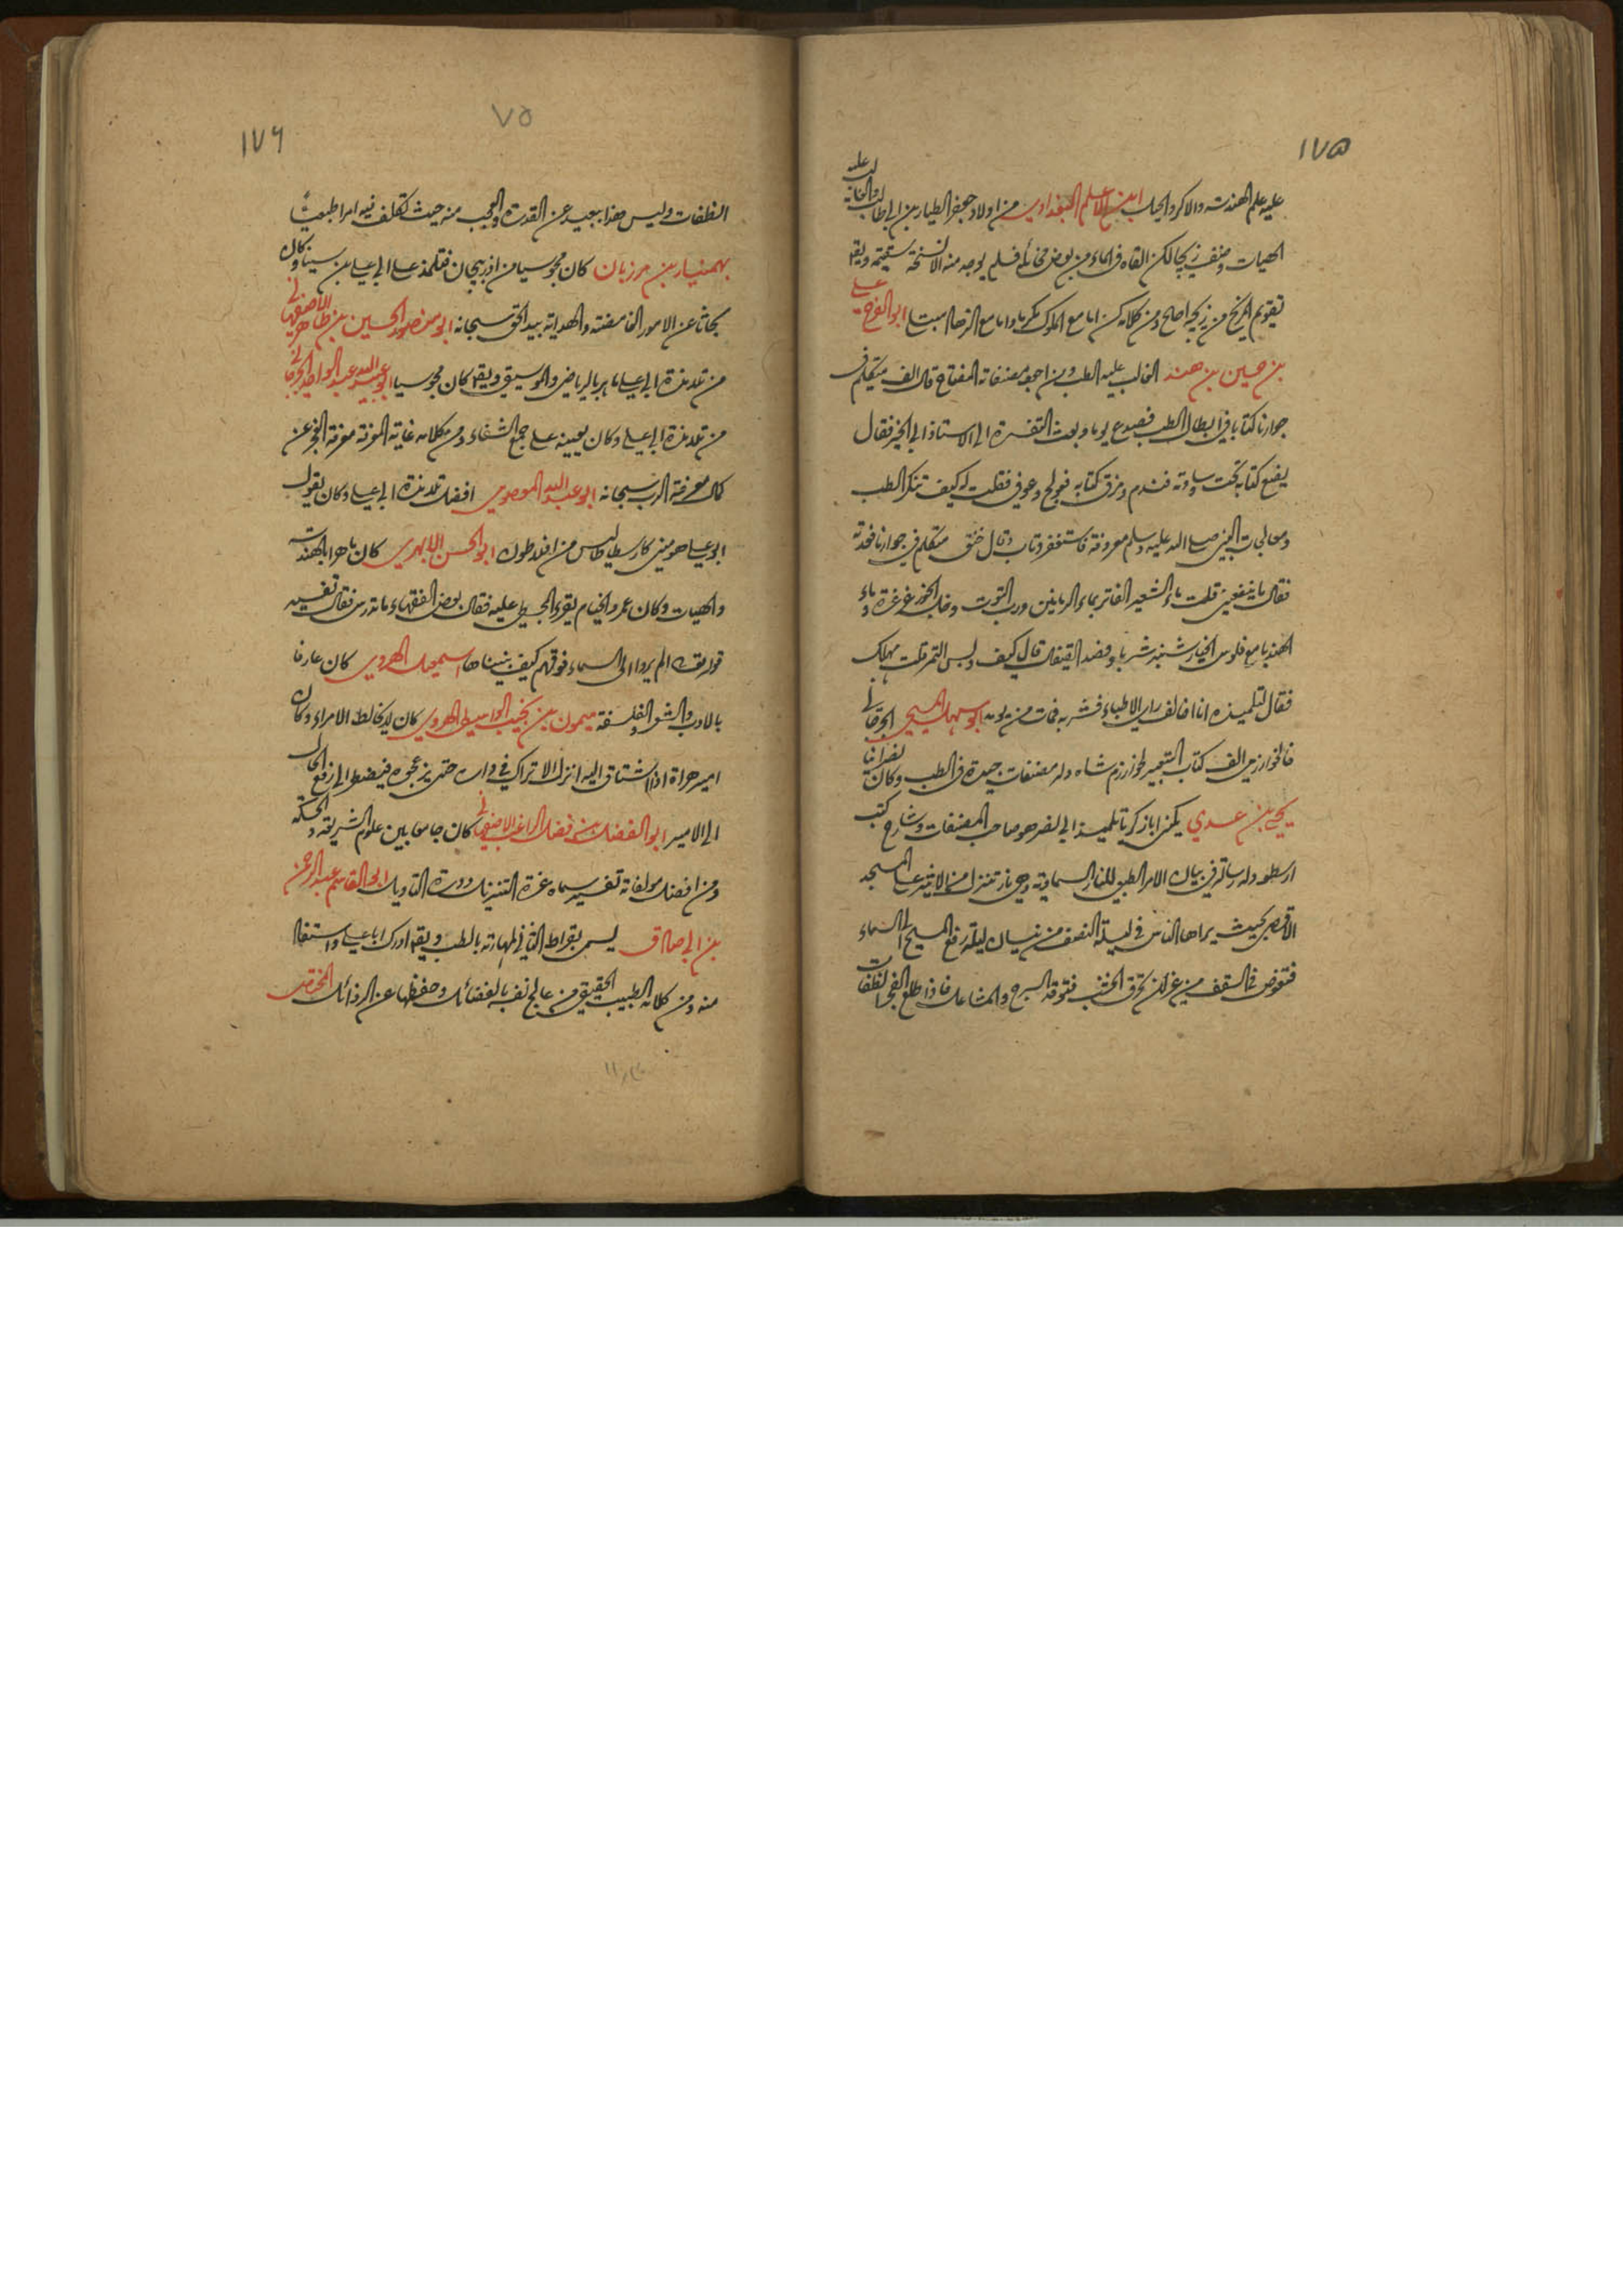 ١٧٥
عليه علم الهندسة والاكر والحيل ابن الاعلم البغدادي من اولاد جعفر الطيار بن ابي طالب والغالب عليه
الهيات وصنف زيجا لكن القاه في الماء من بعض فلم يوجد منه الا نسخة سقيمة ويقا
تقويم المريخ من زيجه اصلح ومن كلامه كن اما مع الملوك مكرما واما مع الزهاد متبتلا ابو الفرج علي
بن حسين بن هند الغالب عليه الطب ومن اجود مصنفاته المفتاح قال الف متكلم في
جوارنا كتابا في ابطال الطب فصدع يوما وبعث التفسرة الى الاستاذ ابي الخير فقال
يضع كتابه تحت وسادته فندم ومزق كتابه فعولج وعوفي فقلت له كيف تنكر الطب
ومعالجات النبي صلى الله عليه وسلم معروفة فاستغفر وتاب وقال خنق متكلم في جوارنا فخدته
فقال ما ينفعني قلت ماء الشعير الفاتر بماء الرمانين ورب التوت وخل الخمر غرغرة وماء
الهندبا مع فلوس الخيار شنبر شربا وفصد القيفال قال كيف دبس التمر قلت مهلك
فقال لتلميذه انا اخالف راي الاطباء فشربه فمات من يومه ابو سهل المسيحي الجرجاني
خوارزمي الف كتاب التعبير لخوارزم شاه وله مصنفات جيدة في الطب وكان نصرانيا
يحيى بن عدي يكنى ابا زكريا تلميذ ابي نصر هو صاحب المصنفات وشارح كتب
ارسطو وله رسالة في بيان الامر الطبيعي للنار السماوية وهي نار تنزل من الاثير على المسجد
الاقصى بحيث يراها الناس في ليلة النصف من نيسان ليلة رفع المسيح الى السماء
فتغوص في السقف من غير ان تحرق الخشب فتوقد السرج والمشاعل فاذا طلع الفجر انطفات
١٧٦
٧٥
انطفات وليس هذا ببعيد عن القدرة والعجب منه حيث تكلف فيه امرا طبعيا
بهمنيار بن مرزبان كان مجوسيا من اذربيجان فتلمذ على ابي علي بن سينا وكان
بحاثا عن الامور الغامضة والهداية بيد الحق سبحانه ابو منصور الحسين بن طاهر الاصفهاني
من تلامذة ابي علي ماهر بالرياضي والموسيقي ويقا كان مجوسيا ابو عبد الله عبد الواحد الجرجاني
من تلامذة ابي علي وكان يعينه على جمع الشفاء ومن كلامه غاية المعرفة معرفة العجز عن
كمال معرفة الرب سبحانه ابو عبد الله المعصومي افضل تلامذة ابي علي وكان يقول
ابو علي هو مني كارسطاطاليس من افلاطون ابو الحسن الابهري كان ماهرا بالهندسة
والهيات وكان عمر والخيام يقرء المجسطي عليه فقال بعض الفقهاء ما تدرس فقال تفسير
قوله تع الم يروا الى السماء فوقهم كيف بنيناها اسمعيل الهروي كان عارفا
بالادب والشعر والفلسفة ميمون بن نجيب الواسطي الهروي كان لا يخالط الامراء وكان
امير هراة اذا اشتاق اليه انزل الاتراك في داره حتى يزعجوه فيضطر الى رفع الحال
الى الامير ابو الفضل بن فضل الراغب الاصفهاني كان جامعا بين علوم الشريعة والحكمة
ومن افضل مولفاته تفسير سماه غرة التنزيل ودرة التاويل ابو القاسم عبد الرحمن
بن ابي صادق يسمى بقراط الثاني لمهارته بالطب ويقا ادرك ابا علي واستفا
منه ومن كلامه الطبيب الحقيقي من عالج نفسه بالفضائل وحفظها عن الرذائل المختص